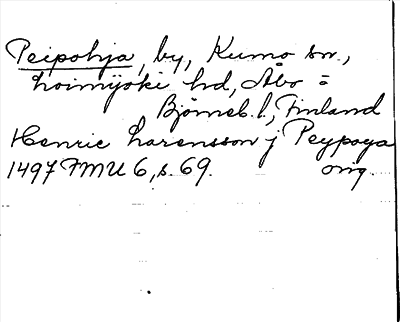 Peipohja, by, Kumo sn.,
Loimijoki hd, Åbo =
Björneb. l., Finland
Henric Larensson j Peypoya
1497 FMU 6, s. 69. orig.